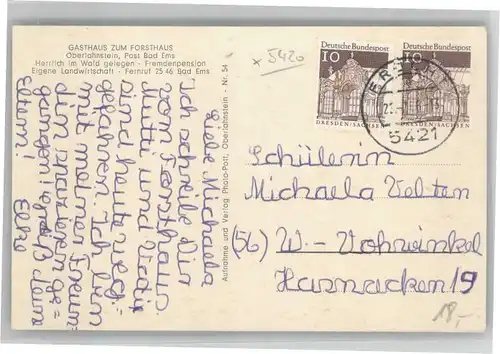 GASTHAUS ZUM FORSTHAUS
Oberlahnstein, Post Bad Ems
Herrlich im Wald gelegen - Fremdenpension
Eigene Landwirtschaft - Fernruf 25 46 Bad Ems
x 5420
Liebe Michaela
Ich schreibe Dir
vom Forsthaus.
Mutti und Vati
sind heute weg=
gefahren. Ich bin
mit meiner Freun=
din spazieren ge=
gangen! grüß deine
Eltern! Elke
Aufnahme und Verlag Photo-Post, Oberlahnstein - Nr. 54
Deutsche Bundespost
10
DRESDEN-SACHSEN
Deutsche Bundespost
10
DRESDEN-SACHSEN
5421
Schülerin
Michaela Velten
(56) W.-Vohwinkel
Harnacken 19
18,-